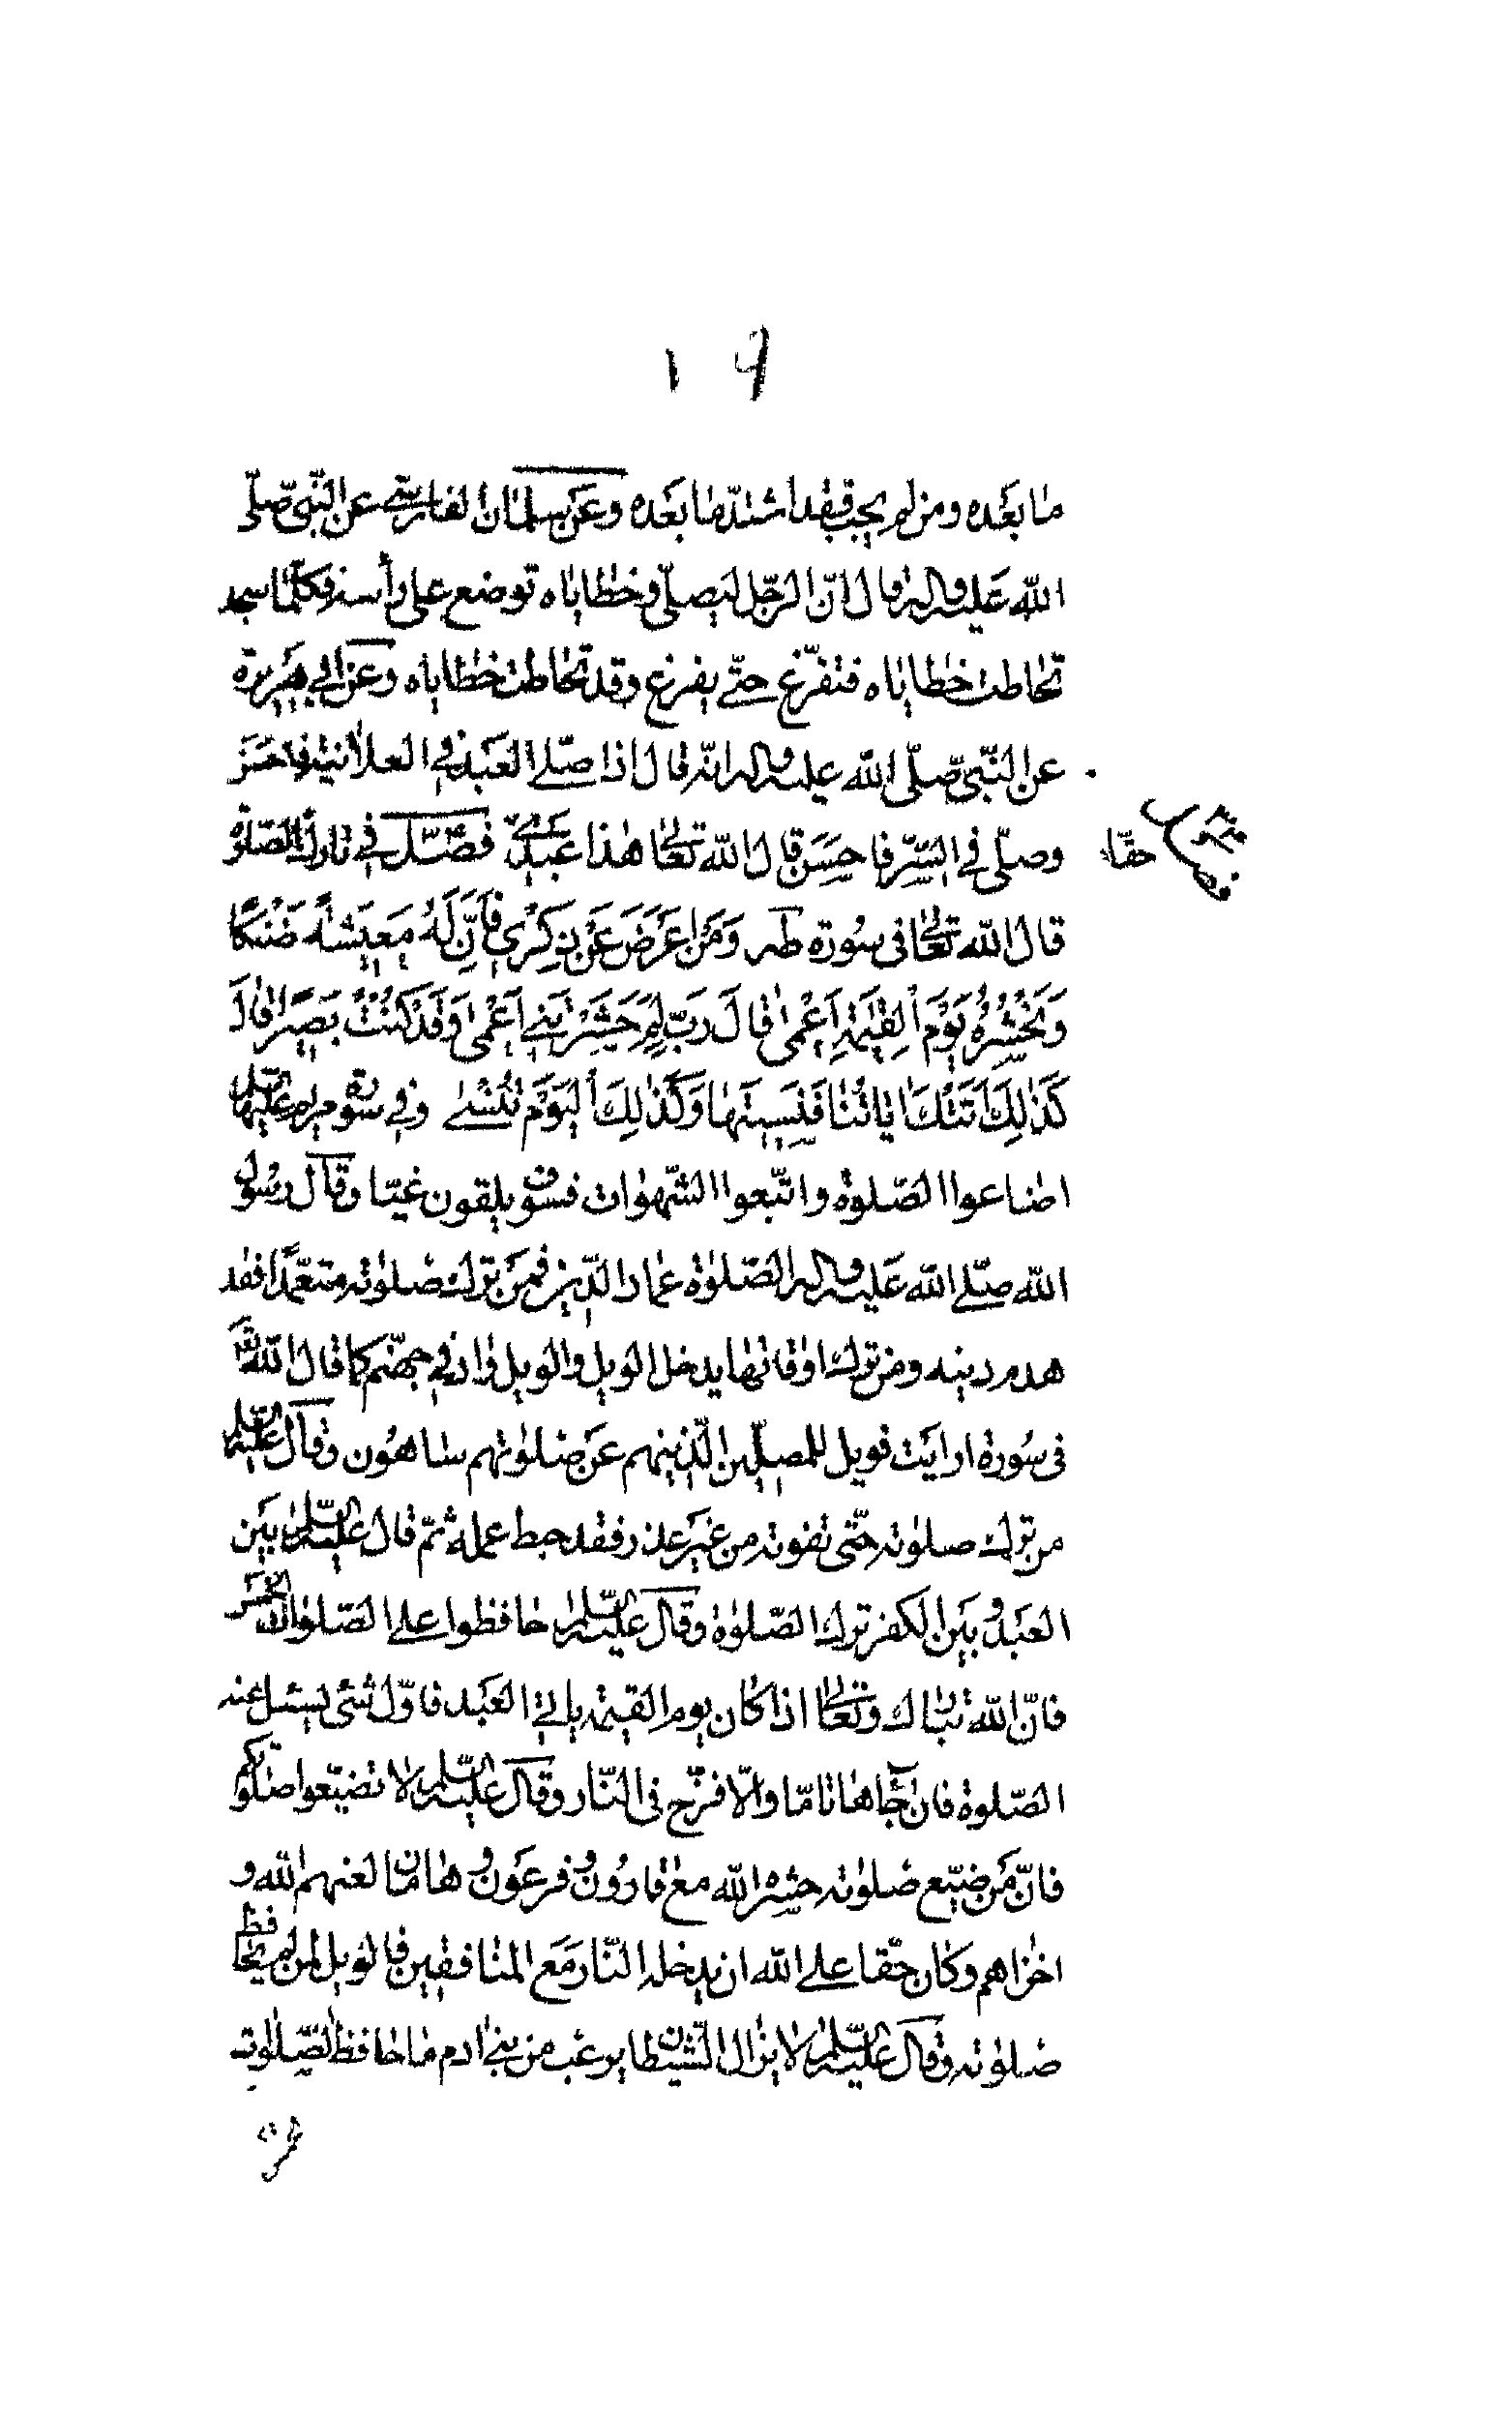 ١ ٩
ما بعده ومن لم يجب فقد اشتدّ ما بعده وعن سلمان الفارسّى عن النّبىّ صلّى
اللّه عليه واله قال انّ الرّجل ليصلّى وخطاياه توضع على رأسه فكلّما سجد
تحاطت خطاياه فتفرّغ حتّى يفرغ وقد تحاطت خطاياه وعن ابى هريرة
عن النّبىّ صلّى اللّه عليه واله انّه قال اذا صلّى العبد فى العلانية فاحسن
وصلّى فى السّرّ فاحسن قال اللّه تعالى هذا عبدى فصل فى تارك الصّلوة
حقّا
فصل
قال اللّه تعالى فى سورة طه وَمَن اعَرَضَ عَن ذِكْرى فَاِنَّ لَهُ مَعيشةً ضَنْكاً
وَنَحْشُرُهُ يَوْمَ اْلقِيٰمَةِ اَعْمٰى قالَ رَبِّ لِمَ حَشَرْتَنى اَعْمٰى وَقَدْ كُنْتُ بَصيراً قالَ
كَذٰلِكَ اَتَتْكَ اياتُنا فَنَسيتَها وَكَذٰلِكَ اْليَوْمَ تُنْسٰى وفى سورة مريم عليها السّلم
اضاعوا الصّلوة واتّبعوا الشّهوات فسوف يلقون غيّا وقال رسول
اللّه صلّى اللّه عليه واله الصّلوة عماد الدّين فمن ترك صلوته متعمّداً فقد
هدم دينه ومن ترك اوقاتها يدخل الويل والويل واد فى جهنّم كما قال اللّه تعالى
فى سورة ارايت فويل للمصلّين الّذينهم عن صلوتهم ساهون وقال عليه السّلم
من ترك صلوته حتّى تفوته من غير عذر فقد حبط عمله ثمّ قال عليه السّلم بين
العبد وبين الكفر ترك الصّلوة وقال عليه السّلم حافظوا على الصّلوات الخمس
فانّ اللّه تبارك وتعالى اذا كان يوم القيمة ياتى العبد فاوّل شئ يسئل عنه
الصّلوة فان جاء بها تامّا والّا فزخّ فى النّار وقال عليه السّلم لا تضيّعوا صلوتكم
فانّ من ضيّع صلوته حشره اللّه مع قارون وفرعون وهامان لعنهم اللّه و
اخزاهم وكان حقّا على اللّه ان يدخله النّار مع المنافقين فالويل لمن لم يحافظ
صلوته وقال عليه السّلم لا يزال الشّيطان يرعب من بنى ادم ما حافظ الصّلوات